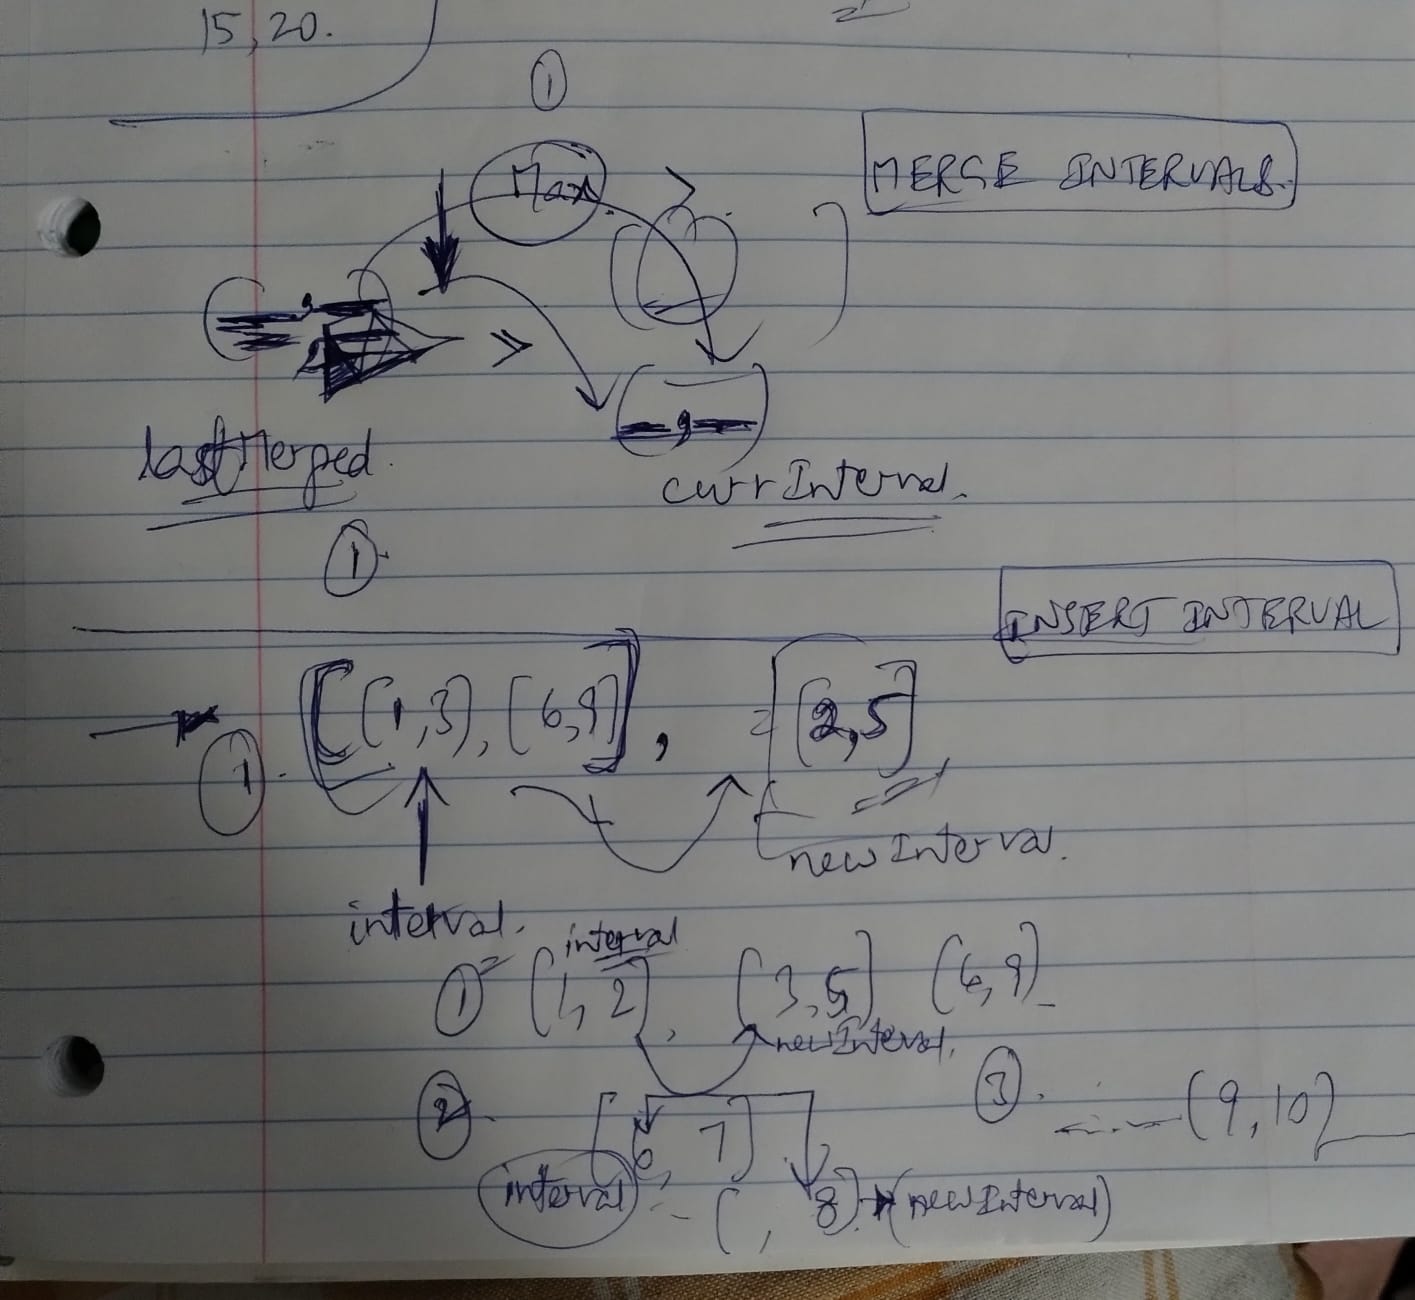 15, 20.
①
MERGE INTERVALS.
Max. >
>
lastMerged.
currInterval.
①.
INSERT INTERVAL
①. [[1,3], [6,9]], = [2,5]
newInterval.
interval.
interval
① [1, 2], [3,5] [6,9]
newInterval.
② [6, 7]
③. [9,10]
interval [ , 8] (newInterval)